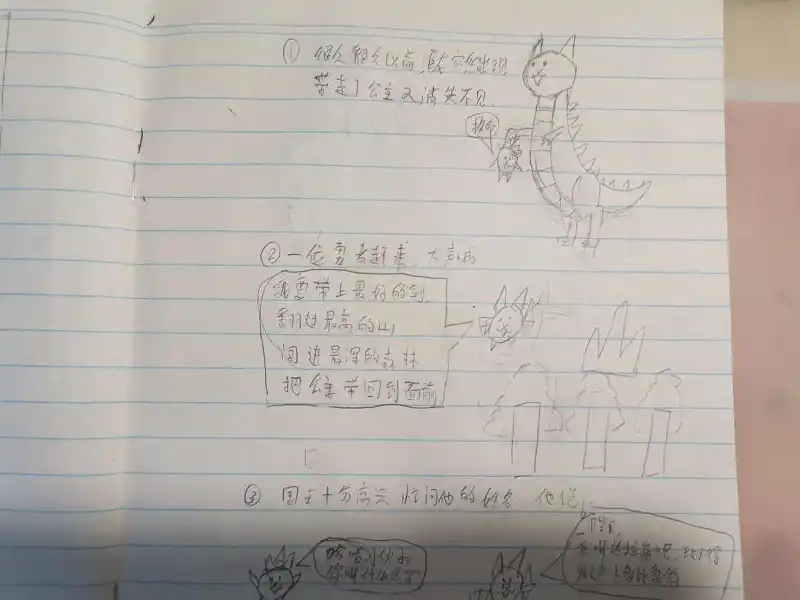 ① 很久很久以前,巨龙突然出现
带走了公主又消失不见
救命
② 一位勇者赶来,大声喊
我要带上最好的剑
翻过最高的山
闯进最深的森林
把公主带回到面前
③ 国王十分高兴 忙问他的姓名 他说
哈哈小伙子
你叫什么名字